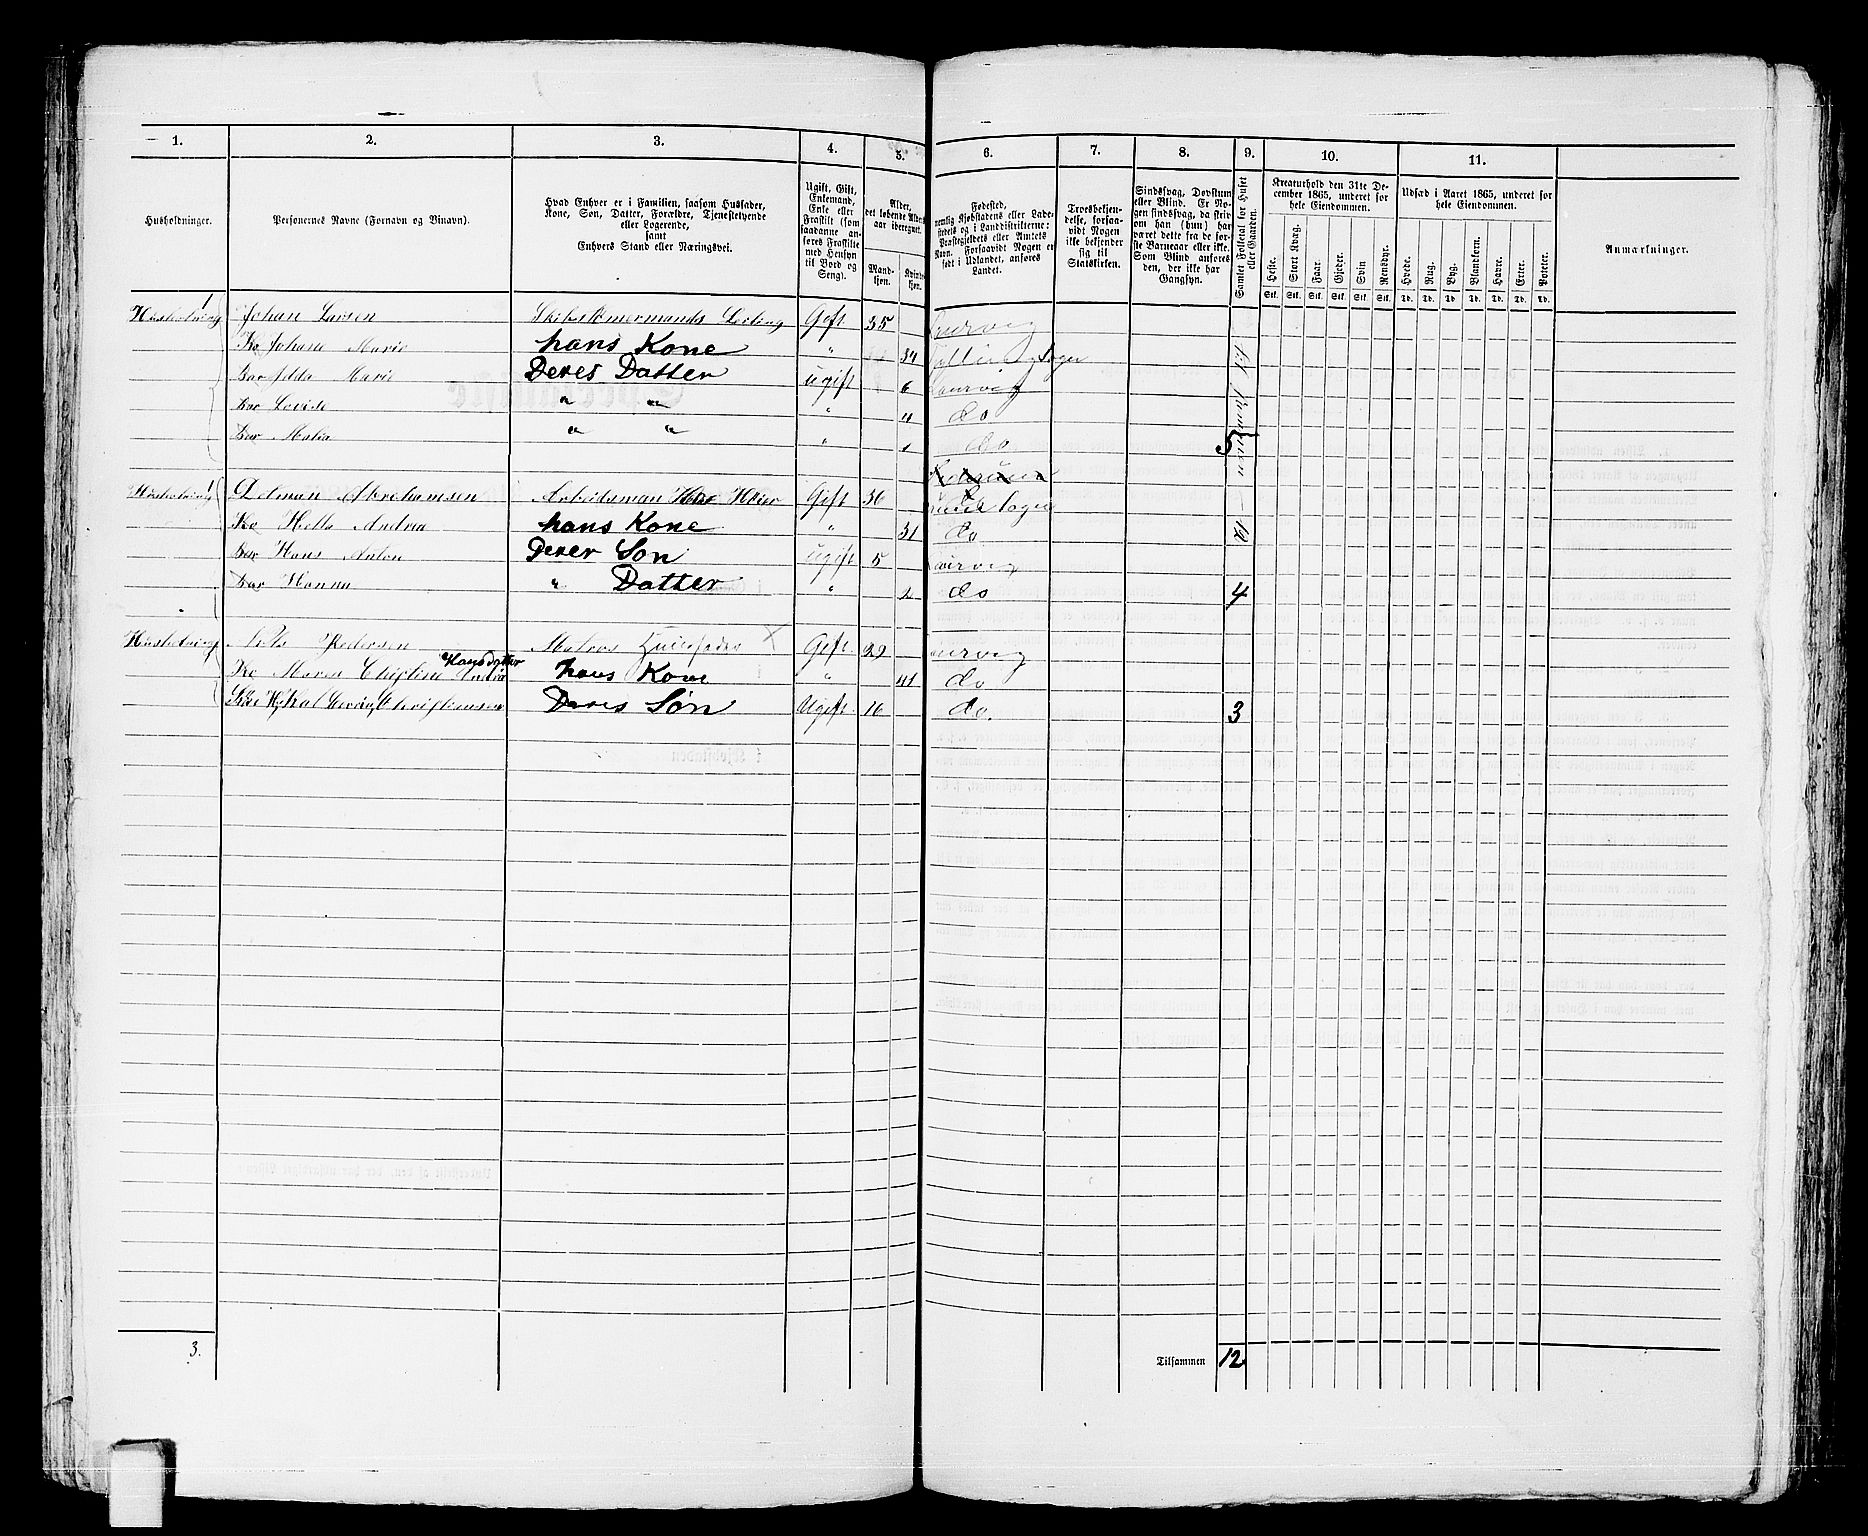 1. 2. 3. 4. 5. 6. 7. 8. 9. 10. 11.
Husholdninger.
Personernes Navne (Fornavn og Binavn).
Hvad Enhver er i Familien, saasom Husfader,
Kone, Søn, Datter, Forældre, Tjenestetyende
eller Logerende,
samt
Enhvers Stand eller Næringsvei.
Ugift, Gift,
Enkemand,
Enke eller
Fraskilt (som
saadanne an-
føres Fraskilte
med Hensyn
til Bord og
Seng).
Alder,
det løbende Alders-
aar iberegnet.
Mand-
kjøn.
Kvinde-
kjøn.
Fødested,
nemlig Kjøbstadens eller Lade-
stedets og i Landdistrikterne:
Præstegjeldets eller Amtets
Navn. Forsaavidt Nogen er
født i Udlandet, anføres
Landet.
Troesbekjen-
delse, forsaa-
vidt Nogen
ikke bekjender
sig til
Statskirken.
Sindssvag, Døvstum
eller Blind. Er No-
gen sindssvag, da skriv
om han (hun) har
været dette fra de før-
ste Barneaar eller ikke.
Som Blind anføres
den, der ikke har
Gangsyn.
Samlet Folketal for Huset
eller Gaarden.
Kreaturhold den 31te De-
cember 1865, underet for
hele Eiendommen.
Heste. Stort Kvæg. Faar. Gjeder. Svin Rensdyr.
Stk. Stk. Stk. Stk. Stk. Stk.
Udsæd i Aaret 1865, underet for
hele Eiendommen.
Hvede. Rug. Byg. Blandkorn. Havre. Erter. Poteter.
Td. Td. Td. Td. Td. Td. Td.
Anmærkninger.
Husholdning 1 Johan Larsen Skibstømermands Lerling Gift 35
Ko Johane Marie hans Kone " 34
Bar Idda Marie Deres Datter ugift 6 Laurvig
Bar Lovise " " " 4 do
Bar Malia " " " 1 do 5
Husholdning 1 Delman Abrahamsen Arbeidsman Gift 36
Ko Hella Andrea hans Kone " 31 do
Bar Hans Anton Deres Søn ugift 5 Laurvig
Bar Hanna " Datter " 2 do 4
Husholdning Nils Pedersen Matros Huusfader X Gift 29 Laurvig
Ko Maren Christine Hansdatter hans Kone " 41 do
Christiansen Deres Søn Ugift 16 do. 3
3.
Tilsammen 12